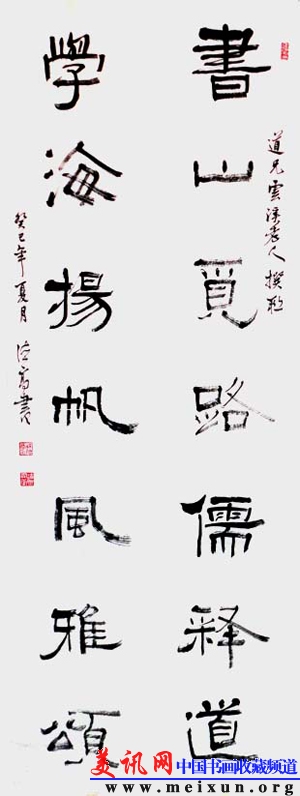 書山覓路儒释道
道兄雲溪老人撰联
學海揚帆風雅頌
癸巳年夏月
書
美讯网 中国书画收藏频道
www.meixun.org